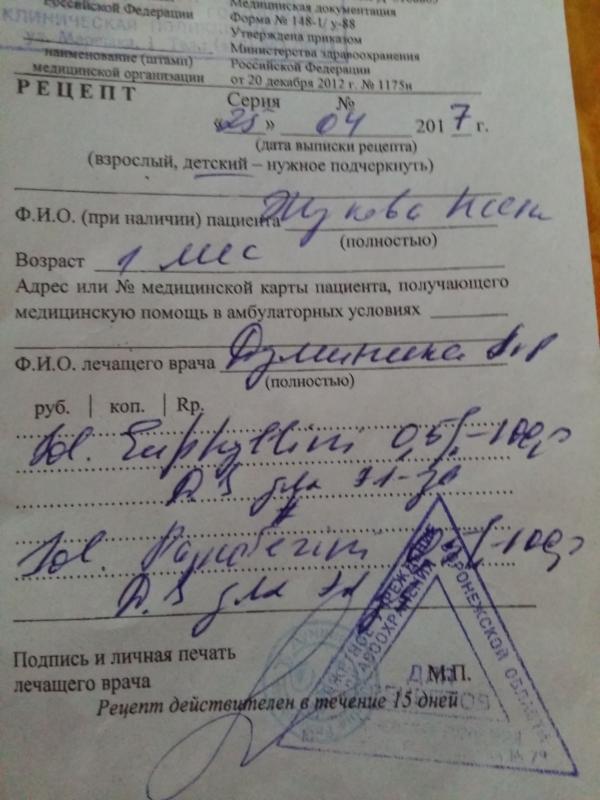 Российской Федерации
Медицинская документация
Форма № 148-1/ у-88
Утверждена приказом
Министерства здравоохранения
Российской Федерации
от 20 декабря 2012 г. № 1175н
наименование (штамп)
медицинской организации
РЕЦЕПТ
Серия №
«25» 04 2017 г.
(дата выписки рецепта)
(взрослый, детский – нужное подчеркнуть)
Ф.И.О. (при наличии) пациента Жукова
(полностью)
Возраст 1 мес
Адрес или № медицинской карты пациента, получающего
медицинскую помощь в амбулаторных условиях
Ф.И.О. лечащего врача
(полностью)
руб. | коп. | Rp.
Sol. Euphyllini 0,5%-100,0
D.S для эл-за
#
Sol. Papaverini 0,5%-100,0
D.S для эл
ВОРОНЕЖСКОЙ ОБЛАСТИ
ЗДРАВООХРАНЕНИЯ
ДЛЯ
Подпись и личная печать
лечащего врача
М.П.
Рецепт действителен в течение 15 дней